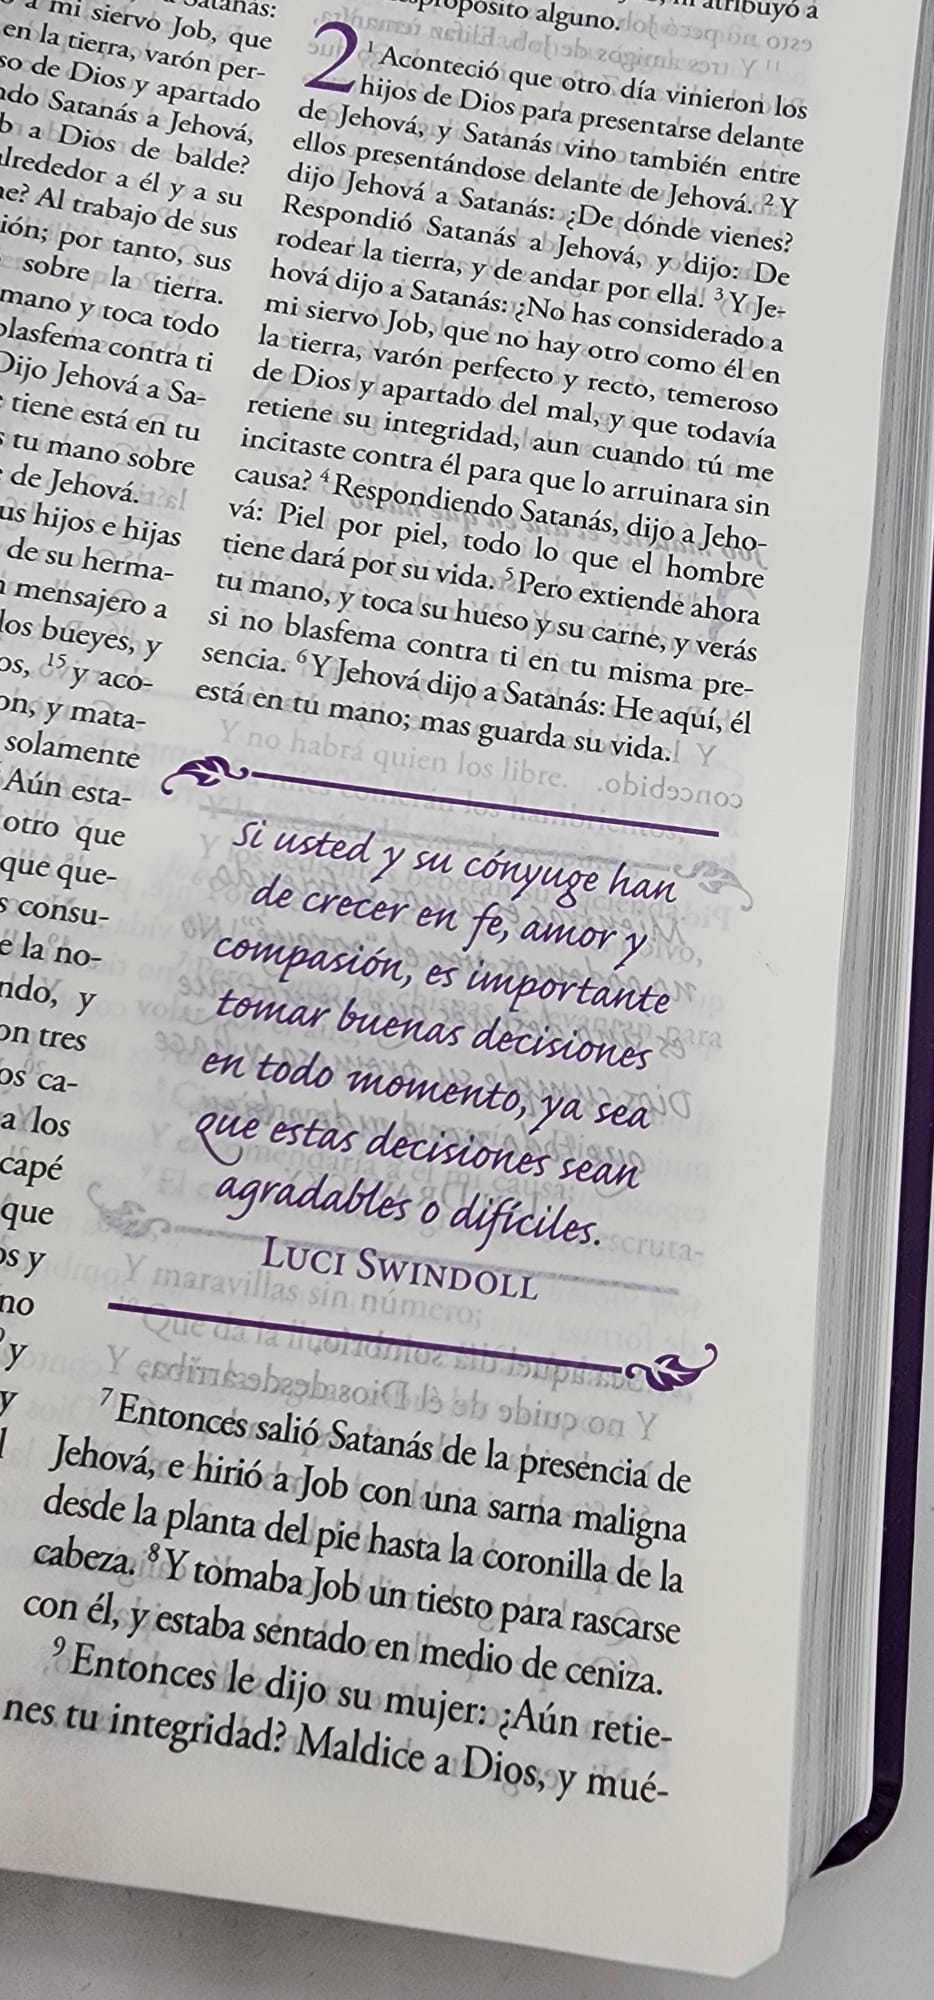 Satanás:
a mi siervo Job, que
en la tierra, varón per-
so de Dios y apartado
ndo Satanás a Jehová,
b a Dios de balde?
alrededor a él y a su
ne? Al trabajo de sus
ión; por tanto, sus
sobre la tierra.
mano y toca todo
blasfema contra ti
Dijo Jehová a Sa-
e tiene está en tu
s tu mano sobre
de Jehová.
us hijos e hijas
de su herma-
n mensajero a
los bueyes, y
os, 15 y aco-
on, y mata-
solamente
Aún esta-
otro que
que que-
s consu-
e la no-
ndo, y
on tres
os ca-
a los
capé
que
os y
no
y
y
espropósito alguno.
atribuyó a
2 1 Aconteció que otro día vinieron los
hijos de Dios para presentarse delante
de Jehová, y Satanás vino también entre
ellos presentándose delante de Jehová. 2 Y
dijo Jehová a Satanás: ¿De dónde vienes?
Respondió Satanás a Jehová, y dijo: De
rodear la tierra, y de andar por ella. 3 Y Je-
hová dijo a Satanás: ¿No has considerado a
mi siervo Job, que no hay otro como él en
la tierra, varón perfecto y recto, temeroso
de Dios y apartado del mal, y que todavía
retiene su integridad, aun cuando tú me
incitaste contra él para que lo arruinara sin
causa? 4 Respondiendo Satanás, dijo a Jeho-
vá: Piel por piel, todo lo que el hombre
tiene dará por su vida. 5 Pero extiende ahora
tu mano, y toca su hueso y su carne, y verás
si no blasfema contra ti en tu misma pre-
sencia. 6 Y Jehová dijo a Satanás: He aquí, él
está en tu mano; mas guarda su vida.
Si usted y su cónyuge han
de crecer en fe, amor y
compasión, es importante
tomar buenas decisiones
en todo momento, ya sea
que estas decisiones sean
agradables o difíciles.
LUCI SWINDOLL
7 Entonces salió Satanás de la presencia de
Jehová, e hirió a Job con una sarna maligna
desde la planta del pie hasta la coronilla de la
cabeza. 8 Y tomaba Job un tiesto para rascarse
con él, y estaba sentado en medio de ceniza.
9 Entonces le dijo su mujer: ¿Aún retie-
nes tu integridad? Maldice a Dios, y mué-